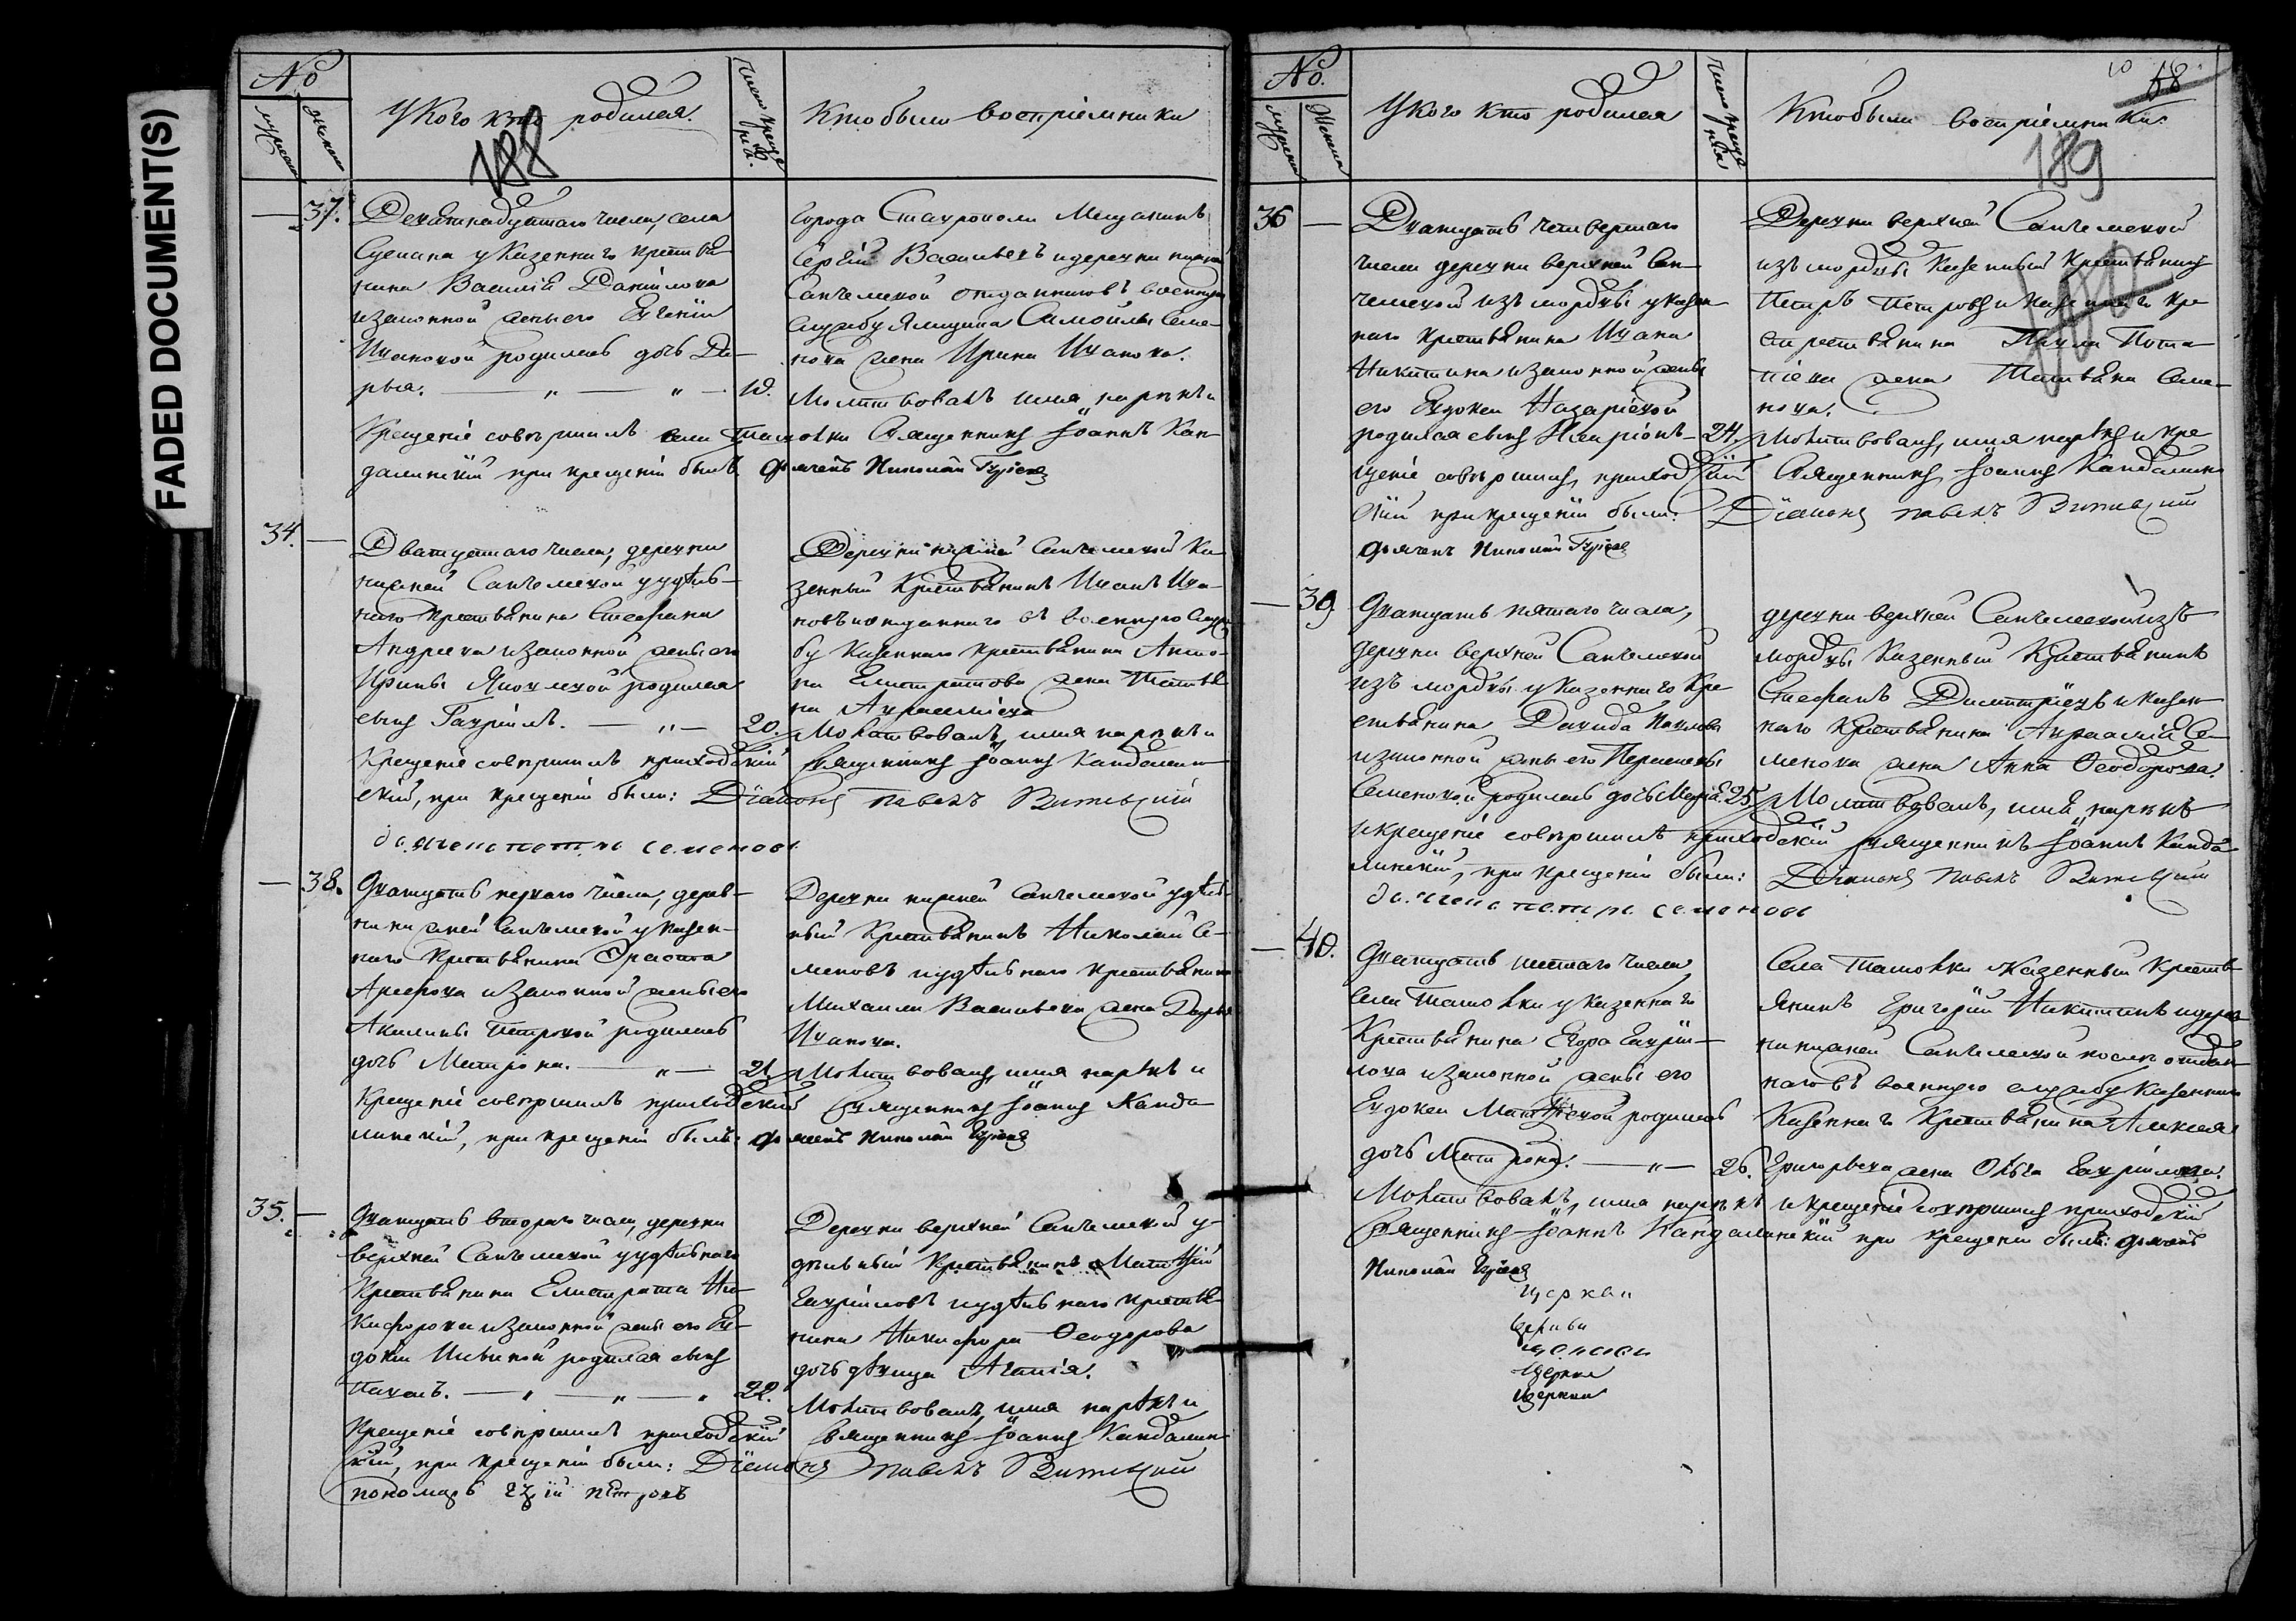 FADED DOCUMENT(S)
№
мужеска
женска
У кого кто родился.
число креще
нія.
Кто были воспріемники
188
37.
Девятнадцатаго числа, села
у казеннаго крестья-
нина Василія Данилова
и законной жены его Евгеніи
Ивановой родилась дочь Да-
рья.
19.
Города Ставрополя Мещанинъ
Сергій Васильевъ и деревни нижней
Санчелеевой отданнаго въ военную
службу Самойлы Семе-
нова жена Ирина Иванова.
Молитвовалъ имя нарекъ и
Крещеніе совершилъ села Ташолки Священникъ Іоаннъ Кан-
далинскій при крещеніи былъ дьячекъ Николай Гурьевъ
34.
Двадцатаго числа, деревни
нижней Санчелеевой у удѣль-
наго крестьянина Стефана
Андреева и законной жены его
Ирины Яковлевой родился
сынъ Гавріилъ.
20.
Деревни нижней Санчелеевой Ка-
зенный Крестьянинъ Иванъ Ива-
новъ и отданнаго въ военную служ-
бу Казеннаго крестьянина Анто-
на Елистратова жена Татья-
на
Молитвовалъ, имя нарекъ и
Крещеніе совершилъ приходскій Священникъ Іоаннъ Кандалин-
скій, при крещеніи были: Діаконъ Павелъ Витевскій
дьячекъ петръ семеновъ
38.
Двадцать перваго числа, дерев-
ни нижней Санчелеевой у казен-
наго Крестьянина Ераста
Арефьева и законной жены его
Акилины Петровой родилась
дочь Матрона.
21.
Деревни нижней Санчелеевой удѣль-
ный Крестьянинъ Николай Се-
меновъ и удѣльнаго крестьянина
Михаила Васильева жена Дарья
Иванова.
Молитвовалъ, имя нарекъ и
Крещеніе совершилъ приходскій Священникъ Іоаннъ Канда-
линскій, при крещеніи былъ: дьячекъ Николай Гурьевъ
35.
Двадцать втораго числа, деревни
верхней Санчелеевой у удѣльнаго
Крестьянина Елистрата Ни-
кифорова и законной жены его Ев-
докіи Ильиной родился сынъ
Павелъ.
22.
Деревни верхней Санчелеевой у-
дѣльный Крестьянинъ Матѳій
Гавріиловъ и удѣльнаго крестья-
нина Никифора Ѳеодорова
дочь дѣвица Агапія.
Молитвовалъ, имя нарекъ и
Крещеніе совершилъ приходскій Священникъ Іоаннъ Кандалин-
скій, при крещеніи были: Діаконъ Павелъ Витевскій
пономарь петровъ
№.
мужеска
Женска
У кого кто родился
число креще
нія
Кто были воспріемники.
10
189
36
Двадцать четвертаго
числа деревни верхней Сан-
челеевой изъ мордвы у казен-
наго крестьянина Ивана
Никитина и законной жены
его Евдокіи Назарьевой
родился сынъ Иларіонъ
24.
Деревни верхней Санчелеевой
изъ мордвы Казенный Крестьянинъ
Петръ Петровъ и казеннаго кре
стьянина Павла Пота-
піева жена Татьяна Семе-
нова.
Молитвовалъ, имя нарекъ и кре-
щеніе совершилъ, приходскій Священникъ Іоаннъ Кандалин-
скій при крещеніи были: Діаконъ Павелъ Витевскій
дьячекъ Николай Гурьевъ
39
Двадцать пятаго числа,
деревни верхней Санчелеевой
изъ мордвы у казеннаго Кре
стьянина Давида Павлова
и законной жены его Пелагеи
Семеновой, родилась дочь Марія.
25.
деревни верхней Санчелеевой изъ
мордвы Казенный Крестьянинъ
Стефанъ Димитріевъ и казен-
наго Крестьянина Се-
менова жена Анна Ѳеодорова.
Молитвовалъ, имя нарекъ
и крещеніе совершилъ приходскій Священникъ Іоаннъ Канда-
линскій, при крещеніи были: Діаконъ Павелъ Витевскій
дьячекъ петръ семеновъ
40.
Двадцать шестаго числа
Села Ташолки у казеннаго
Крестьянина Егора Гаврии-
лова и законной жены его
Евдокіи Матѳеевой родилась
дочь Матрона.
26.
Села Ташолки Казенный Кресть-
янинъ Григорій Никитинъ и дерев-
ни нижней Санчелеевой отдан-
наго въ военную службу Казеннаго
Казеннаго Крестьянина Алексея
Григорьева жена Ольга Гавріилова.
Молитвовалъ, имя нарекъ и крещеніе совершилъ приходскій
Священникъ Іоаннъ Кандалинскій при крещеніи былъ: дьячекъ
Николай Гурьевъ
церкви
церкви
церкви
церкви
церкви